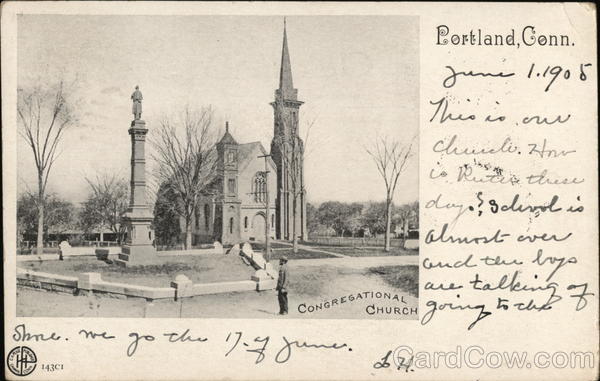 Portland, Conn.
June 1. 1905
This is our
Church. How
is these
days? School is
almost over
and the boys
are talking of
going to the
Shore. We go the 17 of June.
CONGREGATIONAL
CHURCH
143C1
CardCow.com